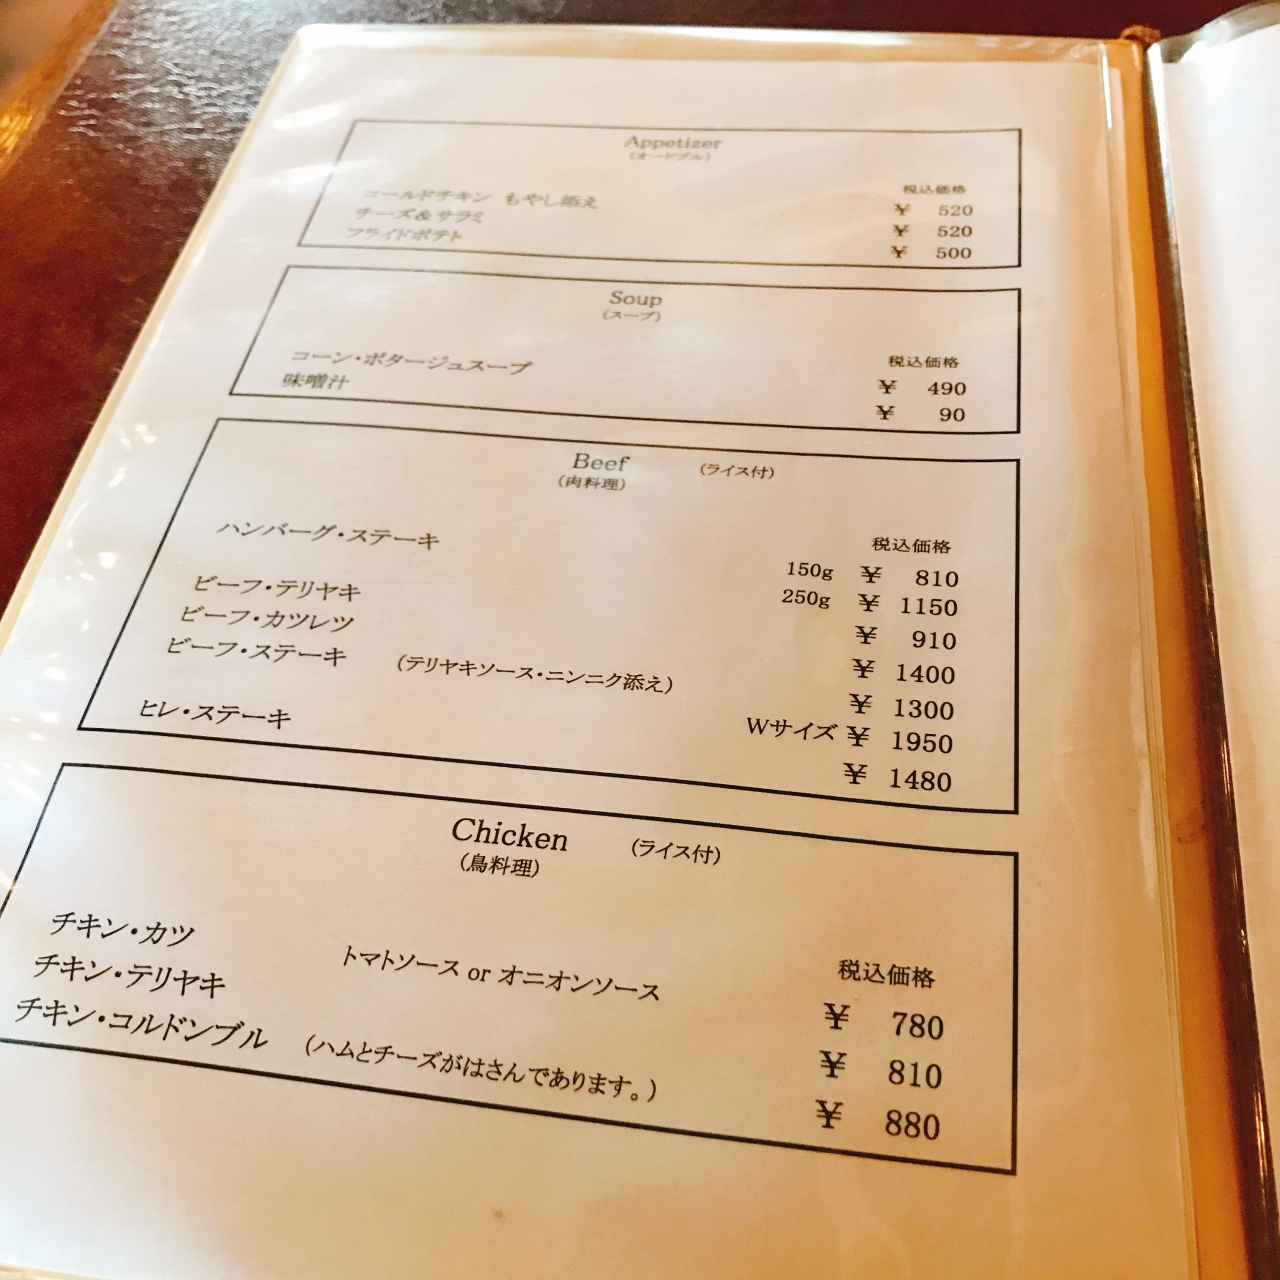 Appetizer
(オードブル)
税込価格
コールドチキン もやし添え ¥ 520
チーズ&サラミ ¥ 520
フライドポテト ¥ 500
Soup
(スープ)
税込価格
コーン・ポタージュスープ ¥ 490
味噌汁 ¥ 90
Beef (ライス付)
(肉料理)
税込価格
ハンバーグ・ステーキ 150g ¥ 810
250g ¥ 1150
ビーフ・テリヤキ ¥ 910
ビーフ・カツレツ ¥ 1400
ビーフ・ステーキ (テリヤキソース・ニンニク添え) ¥ 1300
Wサイズ ¥ 1950
ヒレ・ステーキ ¥ 1480
Chicken (ライス付)
(鳥料理)
税込価格
チキン・カツ トマトソース or オニオンソース ¥ 780
チキン・テリヤキ ¥ 810
チキン・コルドンブル (ハムとチーズがはさんであります。) ¥ 880